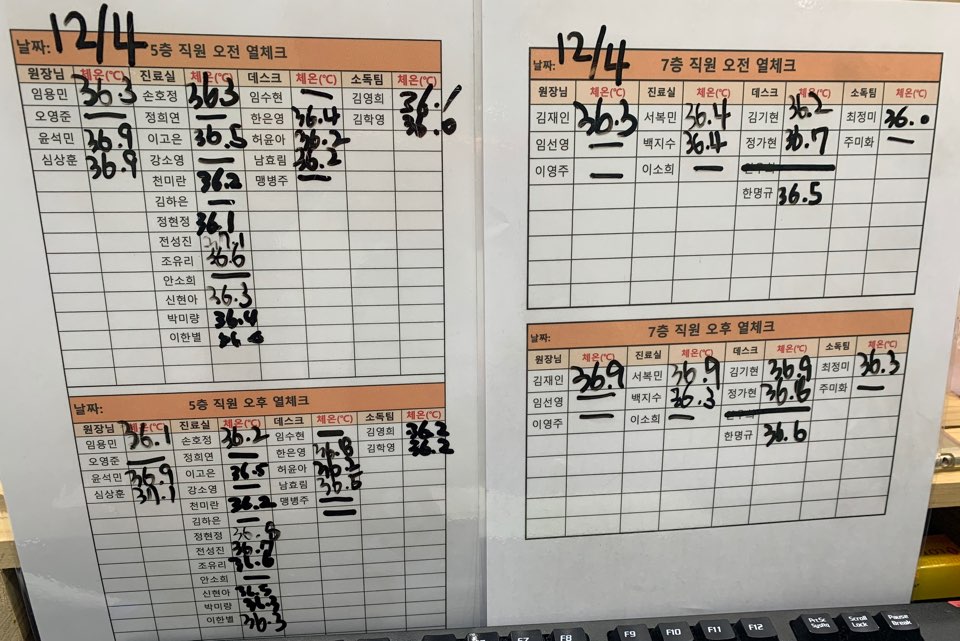 날짜: 12/4 5층 직원 오전 열체크
원장님 체온(℃) 진료실 체온(℃) 데스크 체온(℃) 소독팀 체온(℃)
임용민 36.3 손호정 36.3 임수현 — 김영희 36.1
오영준 — 정희연 — 한은영 36.4 김학영 36.6
윤석민 36.9 이고은 36.5 허윤아 36.2
심상훈 36.9 강소영 — 남효림 36.2
천미란 36.2 맹병주 —
김하은 —
정현정 36.1
전성진 37.1
조유리 36.6
안소희 —
신현아 36.3
박미랑 36.4
이한별
날짜: 5층 직원 오후 열체크
원장님 체온(℃) 진료실 체온(℃) 데스크 체온(℃) 소독팀 체온(℃)
임용민 36.1 손호정 36.2 임수현 — 김영희 36.2
오영준 — 정희연 — 한은영 36.8 김학영 36.2
윤석민 36.9 이고은 36.5 허윤아
심상훈 37.1 강소영 — 남효림 36.6
천미란 36.2 맹병주 —
김하은 —
정현정 36.8
전성진 36.7
조유리 36.6
안소희 —
신현아 36.5
박미랑 36.3
이한별 36.3
날짜: 12/4 7층 직원 오전 열체크
원장님 체온(℃) 진료실 체온(℃) 데스크 체온(℃) 소독팀 체온(℃)
김재인 36.3 서복민 36.4 김기현 36.2 최정미 36.0
임선영 — 백지수 36.4 정가현 36.7 주미화 —
이영주 — 이소희 —
한명규 36.5
날짜: 7층 직원 오후 열체크
원장님 체온(℃) 진료실 체온(℃) 데스크 체온(℃) 소독팀 체온(℃)
김재인 36.9 서복민 36.9 김기현 36.9 최정미 36.3
임선영 — 백지수 36.3 정가현 36.8 주미화 —
이영주 — 이소희 —
한명규 36.6
F7 F8 F9 F10 F11 F12 PrtSc SysRq Scroll Lock Pause Break